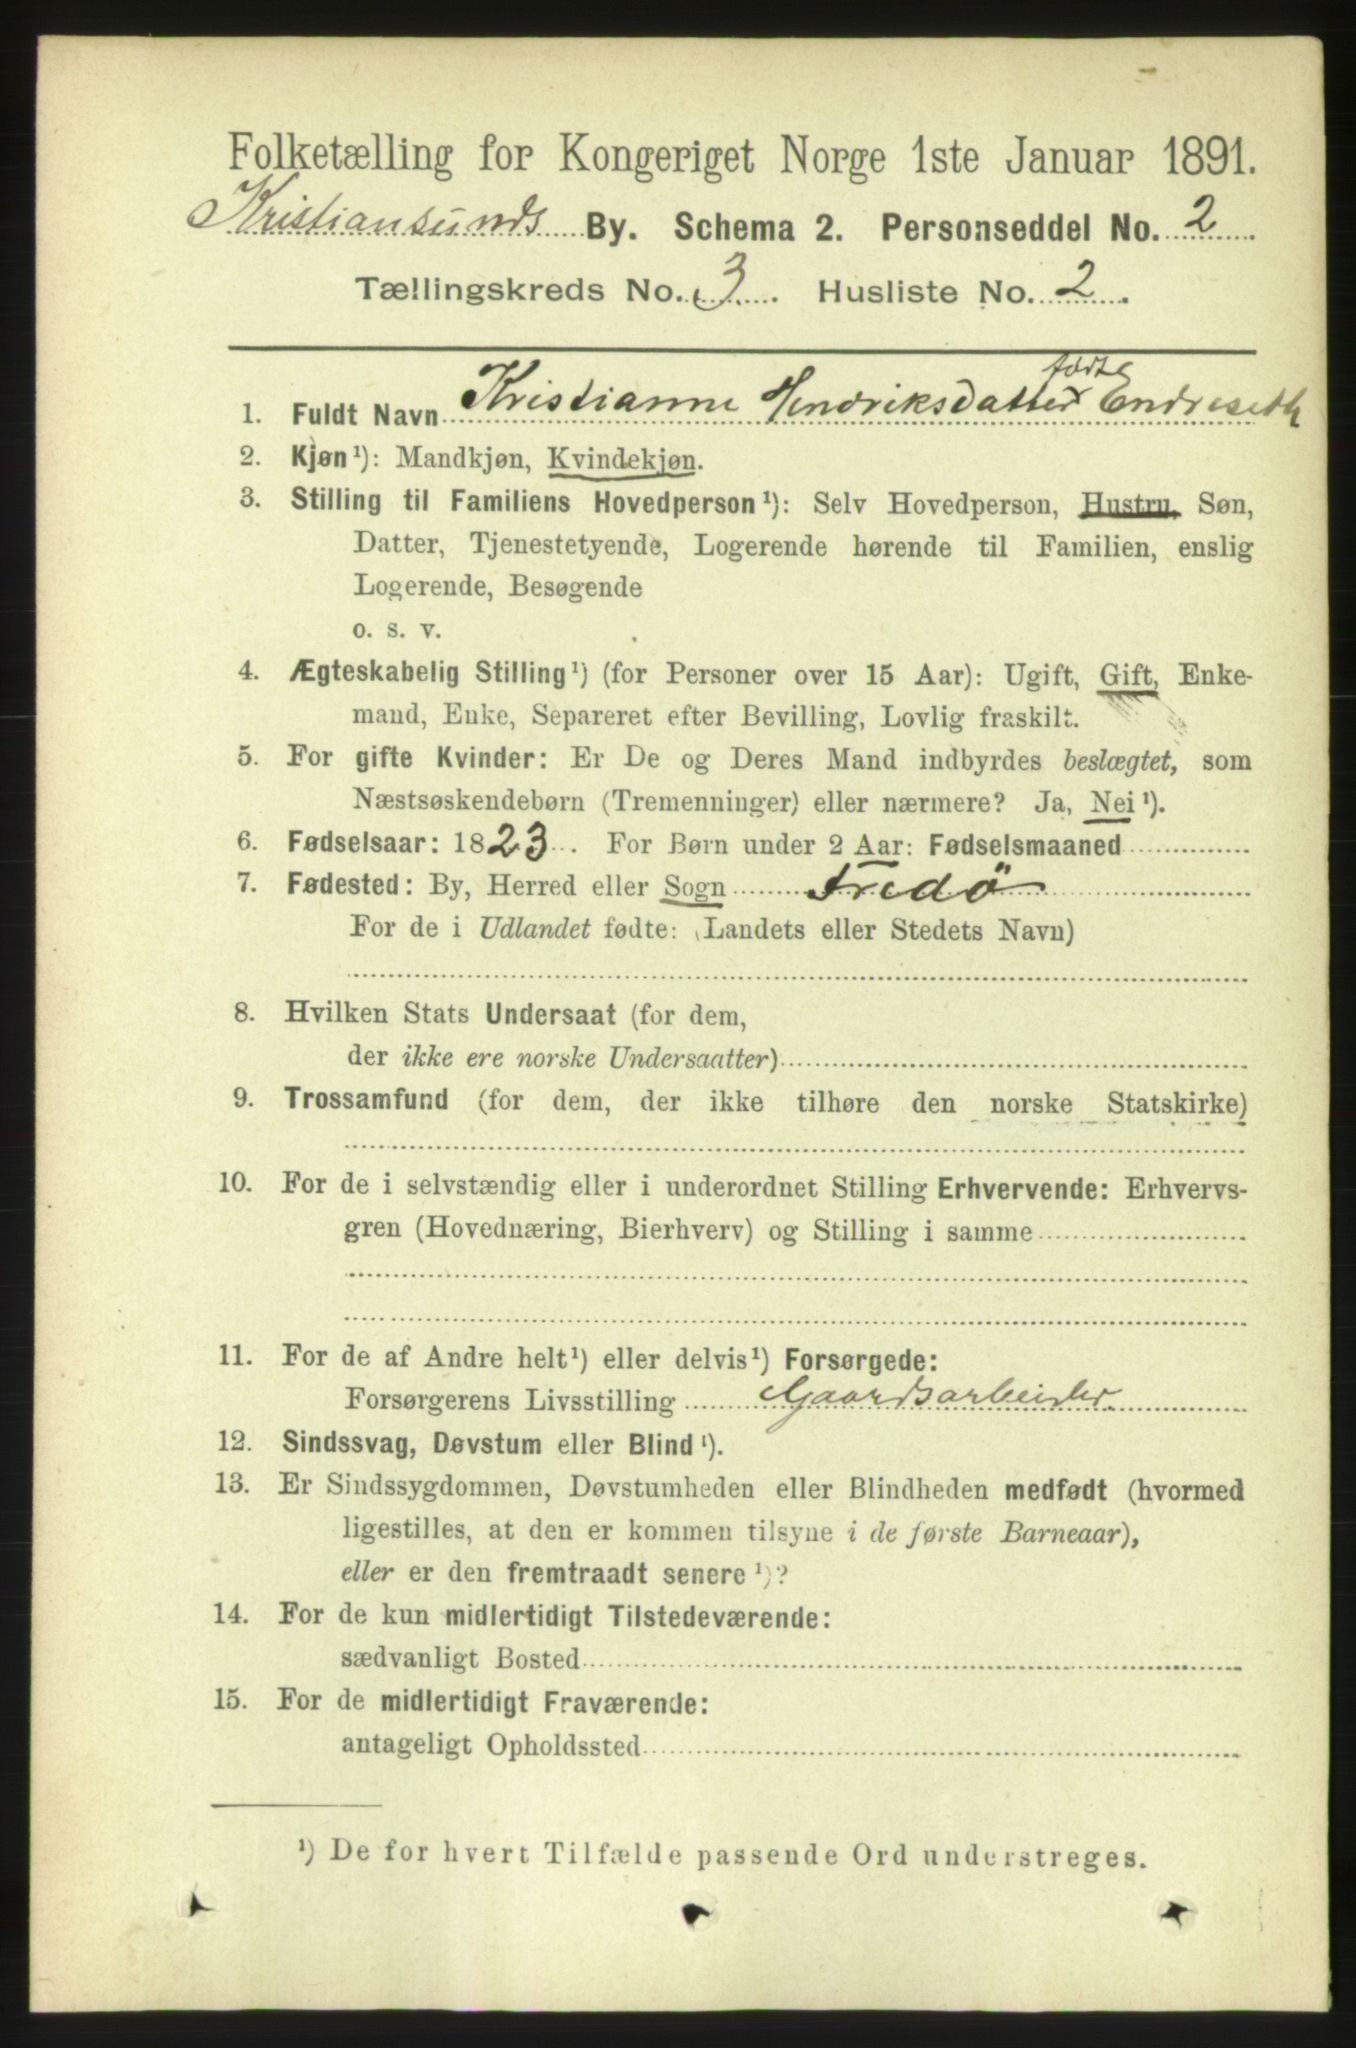 Folketælling for Kongeriget Norge 1ste Januar 1891.
Kristiansunds By. Schema 2. Personseddel No. 2
Tællingskreds No. 3. Husliste No. 2.
fødte
1. Fuldt Navn Kristianne Hendriksdatter Endreseth
2. Kjøn¹): Mandkjøn, Kvindekjøn.
3. Stilling til Familiens Hovedperson¹): Selv Hovedperson, Hustru, Søn,
Datter, Tjenestetyende, Logerende hørende til Familien, enslig
Logerende, Besøgende
o. s. v.
4. Ægteskabelig Stilling¹) (for Personer over 15 Aar): Ugift, Gift, Enke-
mand, Enke, Separeret efter Bevilling, Lovlig fraskilt.
5. For gifte Kvinder: Er De og Deres Mand indbyrdes beslægtet, som
Næstsøskendebørn (Tremenninger) eller nærmere? Ja, Nei¹).
6. Fødselsaar: 1823. For Børn under 2 Aar: Fødselsmaaned
7. Fødested: By, Herred eller Sogn Fredö
For de i Udlandet fødte: (Landets eller Stedets Navn)
8. Hvilken Stats Undersaat (for dem,
der ikke ere norske Undersaatter)
9. Trossamfund (for dem, der ikke tilhøre den norske Statskirke)
10. For de i selvstændig eller i underordnet Stilling Erhvervende: Erhvervs-
gren (Hovednæring, Bierhverv) og Stilling i samme
11. For de af Andre helt¹) eller delvis¹) Forsørgede:
Forsørgerens Livsstilling Gaardsarbeider
12. Sindssvag, Døvstum eller Blind¹).
13. Er Sindssygdommen, Døvstumheden eller Blindheden medfødt (hvormed
ligestilles, at den er kommen tilsyne i de første Barneaar),
eller er den fremtraadt senere¹)?
14. For de kun midlertidigt Tilstedeværende:
sædvanligt Bosted
15. For de midlertidigt Fraværende:
antageligt Opholdssted
¹) De for hvert Tilfælde passende Ord understreges.